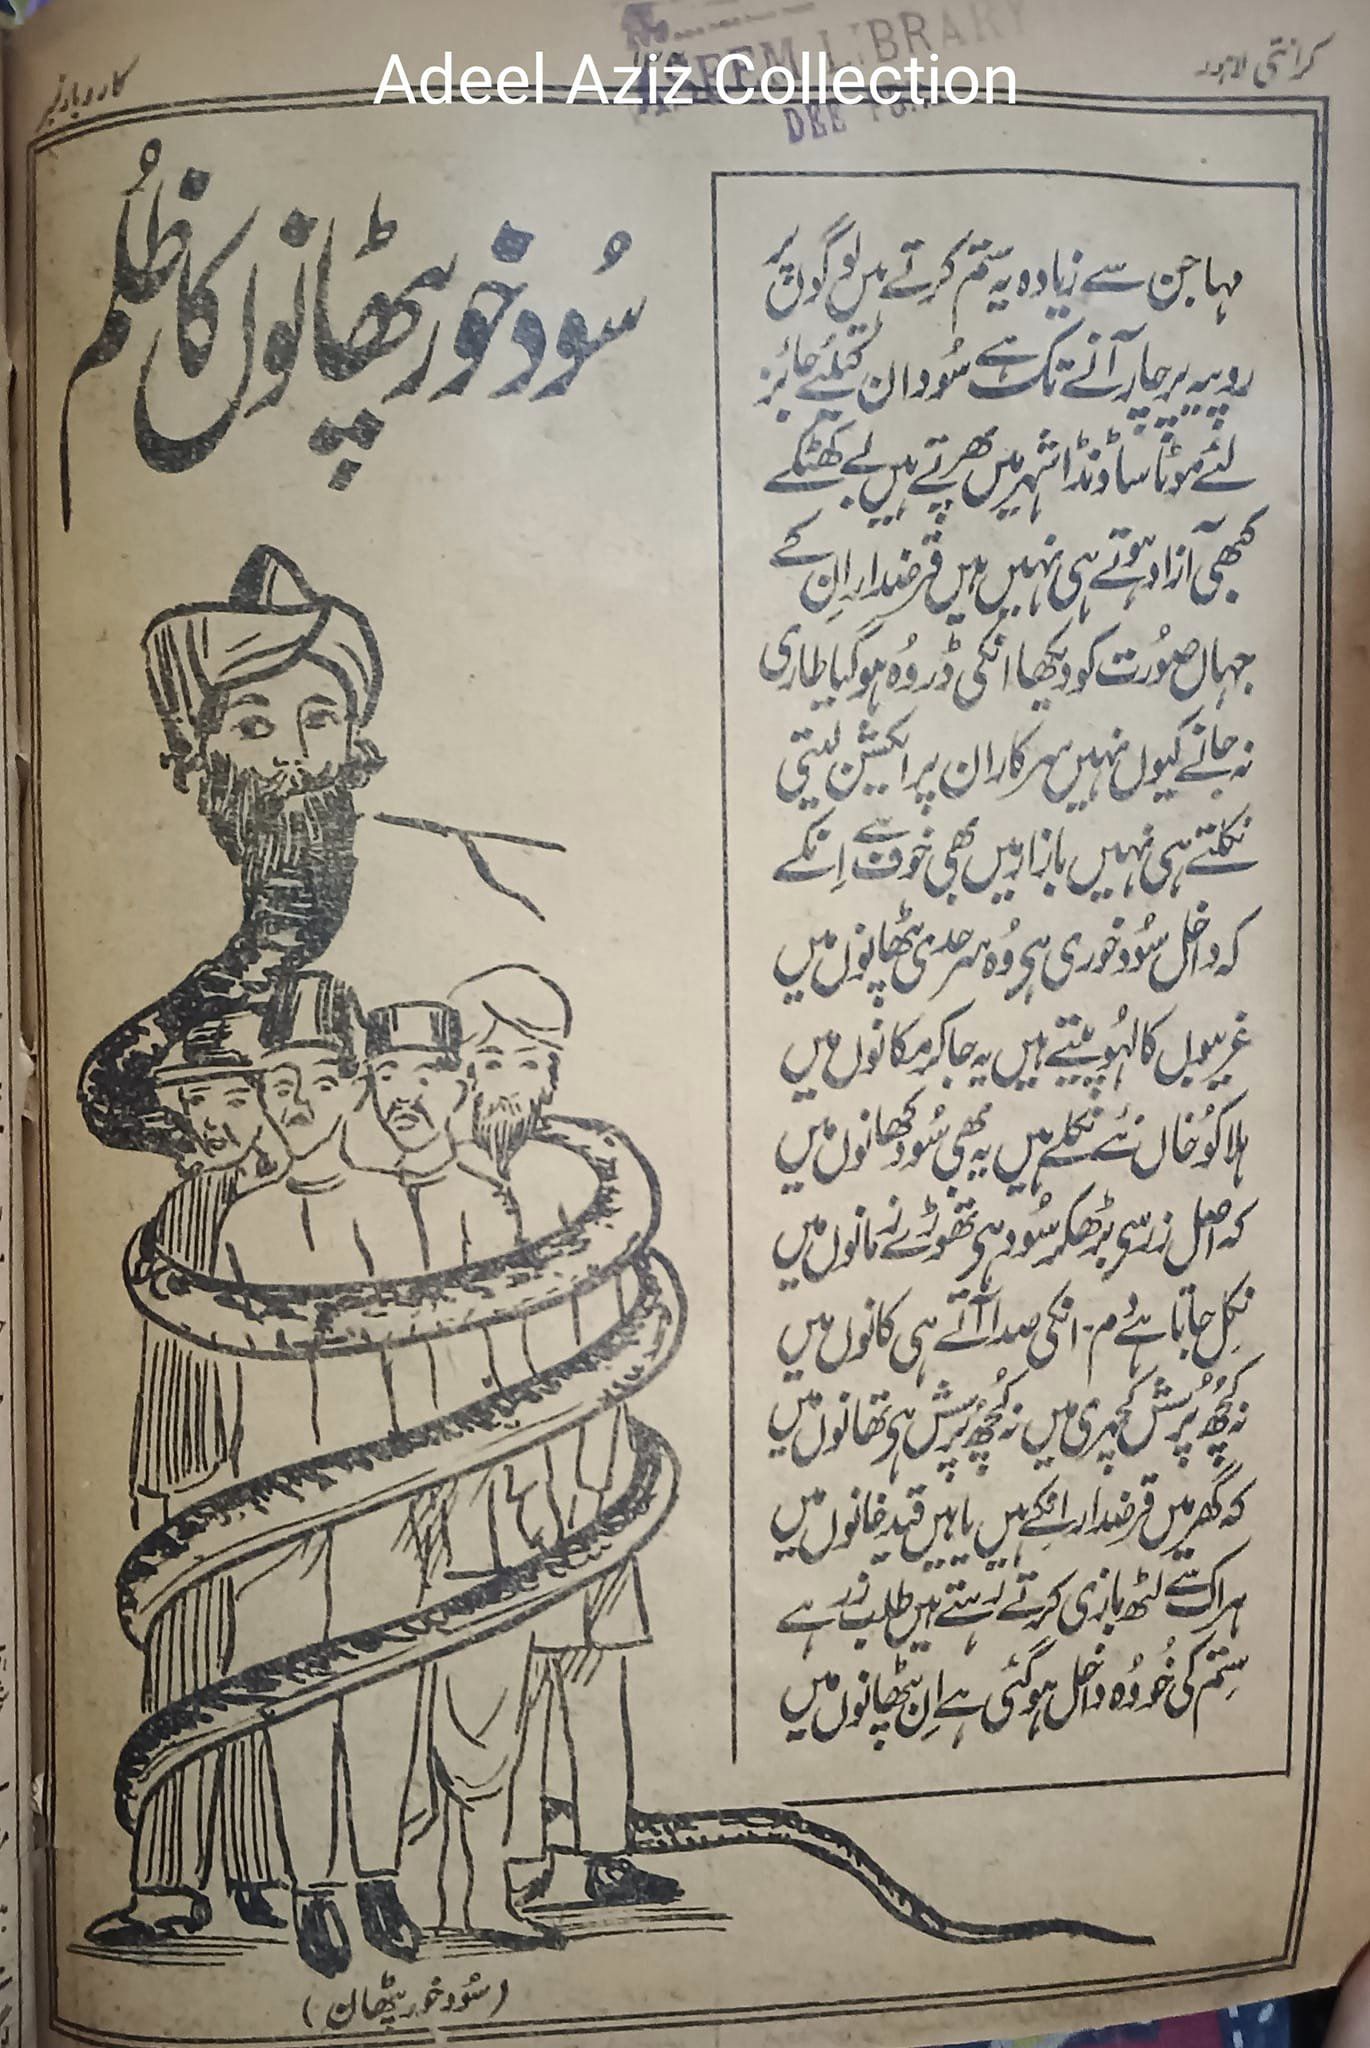 کرانتی لاہور
کاروبار نمبر
Adeel Aziz Collection
LIBRARY
DEE
سُود خور پٹھانوں کا ظلُم
مہاجن سے زیادہ یہ ستم کرتے ہیں لوگوں پر
روپیہ پر چار آنے تک ہے سُود ان کیلئے جائز
لئے موٹا سا ڈنڈا شہر میں پھرتے ہیں بے کھٹکے
کبھی آزاد ہوتے ہی نہیں ہیں قرضدار اِن کے
جہاں صُورت کو دیکھا انکی ڈر وُہ ہو گیا طاری
نہ جانے کیوں نہیں سرکار ان پر ایکشن لیتی
نکلتے ہی نہیں بازار میں بھی خوف سے اِنکے
کہ داخل سُود خوری ہی وُہ سرحدی پٹھانوں میں
غریبوں کا لہُو پیتے ہیں یہ جا کر مکانوں میں
ہلاکُو خاں نئے نکلے ہیں یہ بھی سُود کھانوں میں
کہ اصل زر سی بڑھکر سُود ہی تھوڑے زمانوں میں
نکِل جاتا ہے دُم۔ انکی صدا آتے ہی کانوں میں
نہ کُچھ پُرسش کچہری میں نہ کُچھ پُرسش ہی تھانوں میں
کہ گھر میں قرضدار انکے ہیں یا ہیں قید خانوں میں
ہر اک سے لٹھ بازی کرتے رہتے ہیں طلب زر ہے
سِتم کی خُو وُہ داخل ہو گئی ہے اِن پٹھانوں میں
(سُود خور پٹھان)